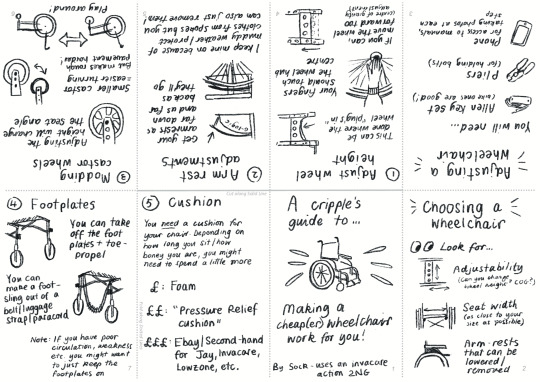 A cripple's
guide to...
Making a
(cheaper) wheelchair
work for you!
By Sock - uses an invacare
action 2NG
Choosing a
wheelchair
Look for...
Adjustability
(can you change
wheel height? COG?)
Seat width
(as close to your
size as possible)
Arm rests
that can be
lowered /
removed
2
Adjusting a
wheelchair
You will need...
Allen key set
(ake ones are good!)
Pliers
(for holding bolts)
Phone
for access to manuals,
taking photos at each
step
3
① Adjust wheel
height
This can be
done where the
wheel "plugs in"
Your fingers
should touch
the wheel hub
centre
If you can,
move the wheel
forward too
(center of gravity)
② Arm rest
adjustments
Get your
armrests as
far down
and as far
back as
they'll go
I keep mine on because of
muddy weather / protect
clothes from spokes but you
can also just remove them
③ Modding
castor wheels
Adjusting the
height will change
the seat angle
Smaller castor
= easier turning
But makes
pavement harder
Play around!
④ Footplates
You can take
off the foot
plates + toe-
propel
You can
make a foot-
sling out of a
belt/luggage
strap/paracord
Note: If you have poor
circulation, weakness
etc. you might want
to just keep the
footplates on
⑤ Cushion
You need a cushion for
your chair. Depending on
how long you sit / how
boney you are, you might
need to spend a little more
£: Foam
££: "Pressure Relief
cushion"
£££: Ebay/Second-hand
for Jay, Invacare,
Lowzone, etc.